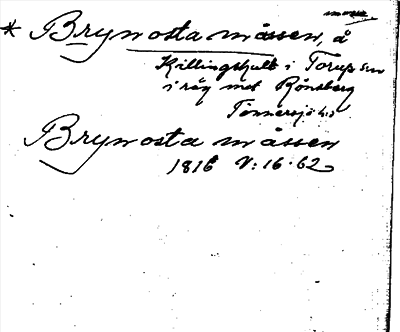 * Brynosta måssen, å
Killingshult i Torup sn
i råg med Rönsberg
Tönnersjö hd
Brynosta måssen
1816 V: 16.62